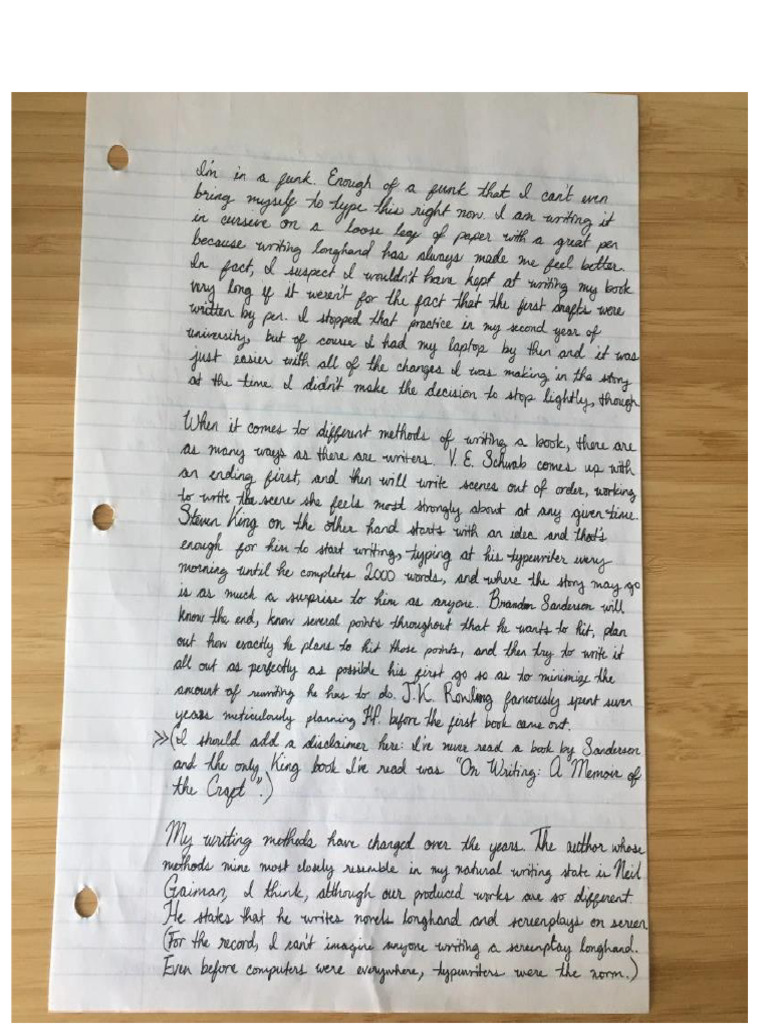 I'm in a funk. Enough of a funk that I can't even
bring myself to type this right now. I am writing it
in cursive on a loose leaf of paper with a great pen
because writing longhand has always made me feel better.
In fact, I suspect I wouldn't have kept at writing my book
very long if it weren't for the fact that the first drafts were
written by pen. I stopped that practice in my second year of
university, but of course I had my laptop by then and it was
just easier with all of the changes I was making in the story
at the time. I didn't make the decision to stop lightly, though
When it comes to different methods of writing a book, there are
as many ways as there are writers. V. E. Schwab comes up with
an ending first, and then will write scenes out of order, working
to write the scene she feels most strongly about at any given time.
Steven King on the other hand starts with an idea and that's
enough for him to start writing, typing at his typewriter every
morning until he completes 2000 words, and where the story may go
is as much a surprise to him as anyone. Brandon Sanderson will
know the end, know several points throughout that he wants to hit, plan
out how exactly he plans to hit those points, and then try to write it
all out as perfectly as possible his first go so as to minimize the
amount of rewriting he has to do. J.K. Rowling famously spent seven
years meticulously planning H.P. before the first book came out.
>> (I should add a disclaimer here: I've never read a book by Sanderson
and the only King book I've read was "On Writing: A Memoir of
the Craft".)
My writing methods have changed over the years. The author whose
methods mine most closely resemble in my natural writing state is Neil
Gaiman, I think, although our produced works are so different.
He states that he writes novels longhand and screenplays on screen
(For the record, I can't imagine anyone writing a screenplay longhand.
Even before computers were everywhere, typewriters were the norm.)